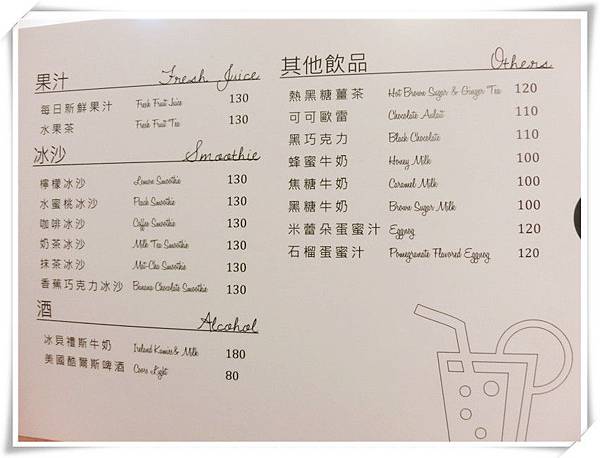 果汁 Fresh Juice
每日新鮮果汁 Fresh Fruit Juice 130
水果茶 Fresh Fruit Tea 130
冰沙 Smoothie
檸檬冰沙 Lemon Smoothie 130
水蜜桃冰沙 Peach Smoothie 130
咖啡冰沙 Coffee Smoothie 130
奶茶冰沙 Milk Tea Smoothie 130
抹茶冰沙 Mat-Cha Smoothie 130
香蕉巧克力冰沙 Banana Chocolate Smoothie 130
酒 Alcohol
冰貝禮斯牛奶 Ireland & Milk 180
美國酷爾斯啤酒 Coors Light 80
其他飲品 Others
熱黑糖薑茶 Hot Brown Sugar & Ginger Tea 120
可可歐蕾 Chocolate Aulait 110
黑巧克力 Black Chocolate 110
蜂蜜牛奶 Honey Milk 100
焦糖牛奶 Caramel Milk 100
黑糖牛奶 Brown Sugar Milk 100
米蕾朵蛋蜜汁 Eggnog 120
石榴蛋蜜汁 Pomegranate Flavored Eggnog 120